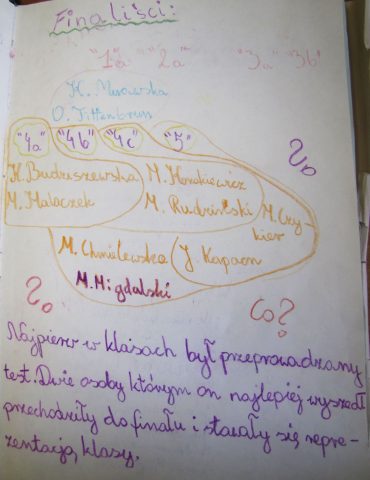 Finaliści:
"1a" "2a" "3a" "3b"
K. Murawska
O. Tittenbrun
"4a" "4b" "4c" "5"
K. Budruszewska M. Honkiewicz
M. Malaczek M. Rudziński M. Czy-
kier
M. Chmielewska J. Kapaon
M. Migdalski
Co?
Najpierw w klasach był przeprowadzany
test. Dwie osoby którym on najlepiej wyszedł
przechodziły do finału i stawały się repre-
zentacją klasy.